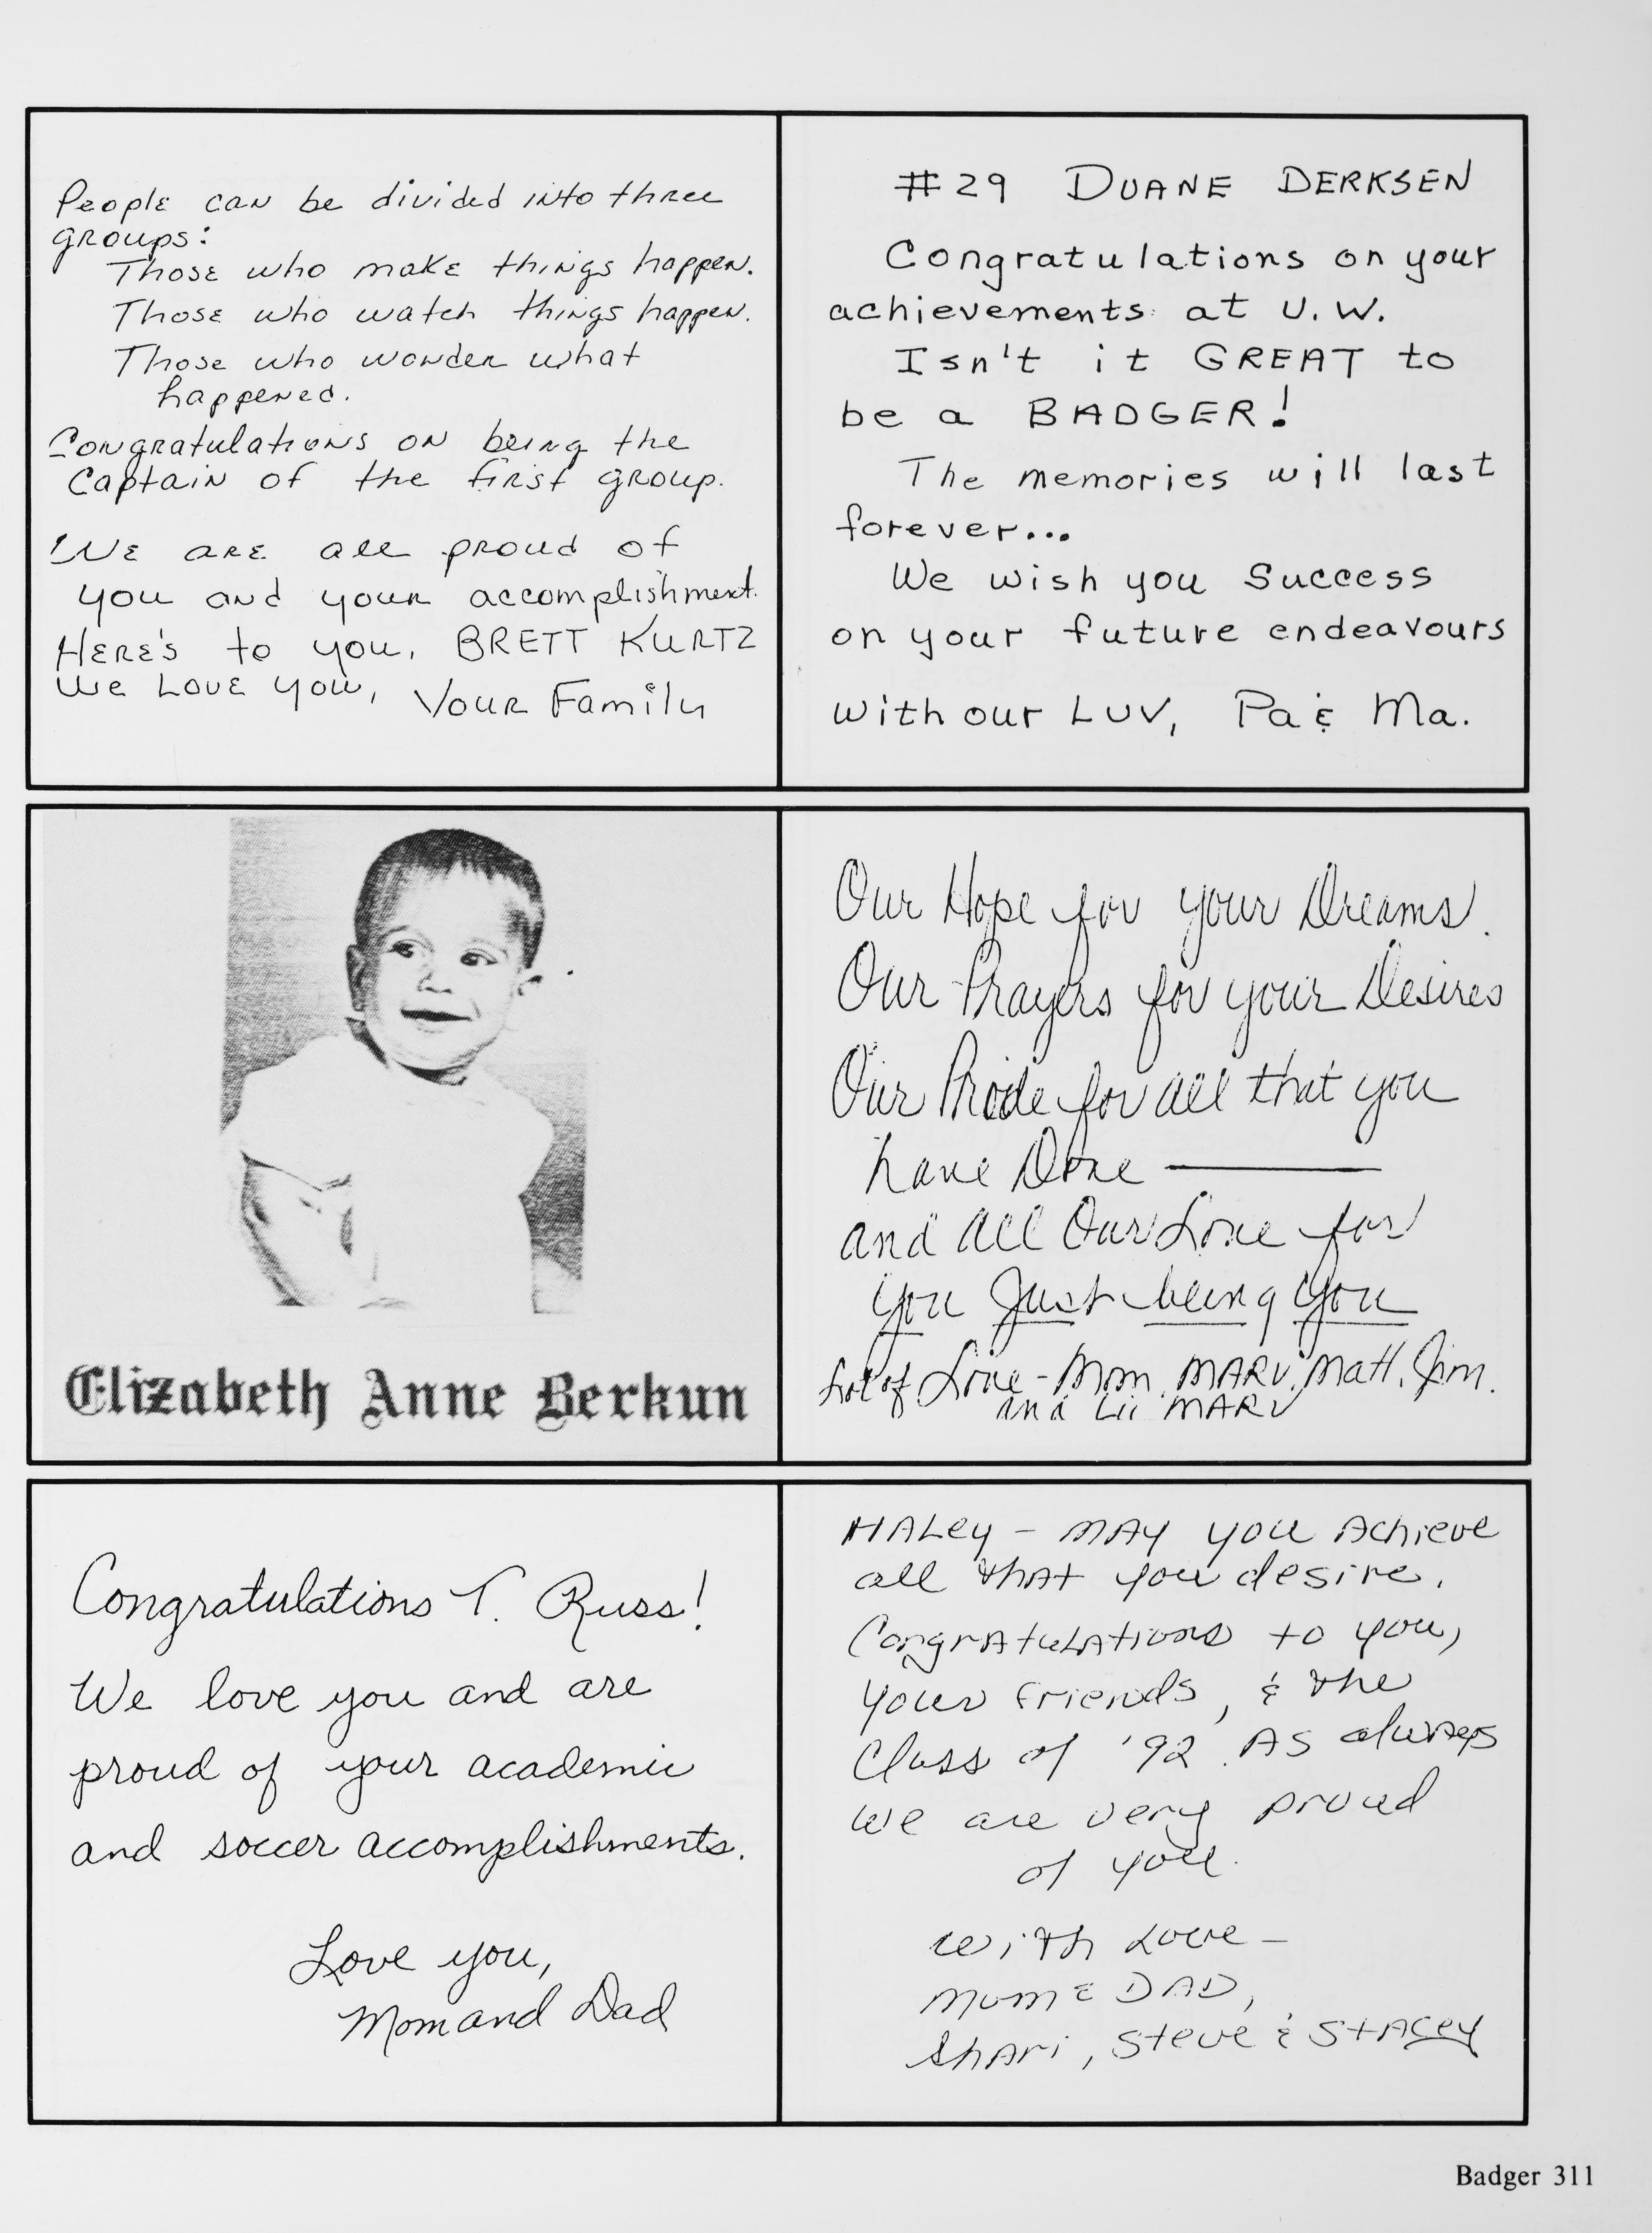 People can be divided into three
groups:
Those who make things happen.
Those who watch things happen.
Those who wonder what
happened.
Congratulations on being the
Captain of the first group.
We are all proud of
you and your accomplishment.
Here's to you, BRETT KURTZ
We Love you, Your Family
#29 DUANE DERKSEN
Congratulations on your
achievements at U.W.
Isn't it GREAT to
be a BADGER!
The memories will last
forever...
We wish you Success
on your future endeavours
with our LUV, Pa & Ma.
Elizabeth Anne Berkun
Our Hope for your Dreams.
Our Prayers for your Desires
Our Pride for all that you
have Done —
and all Our Love for
you Just being you
Lot of Love - Mom, MARV, Matt, Jim.
and Lil MARV
Congratulations T. Russ!
We love you and are
proud of your academic
and soccer accomplishments.
Love you,
Mom and Dad
HALey - MAY you Achieve
all that you desire.
Congratulations to you,
your friends, & the
Class of '92. As always
we are very proud
of you.
with Love -
Mom & DAD,
Shari, Steve & Stacey
Badger 311